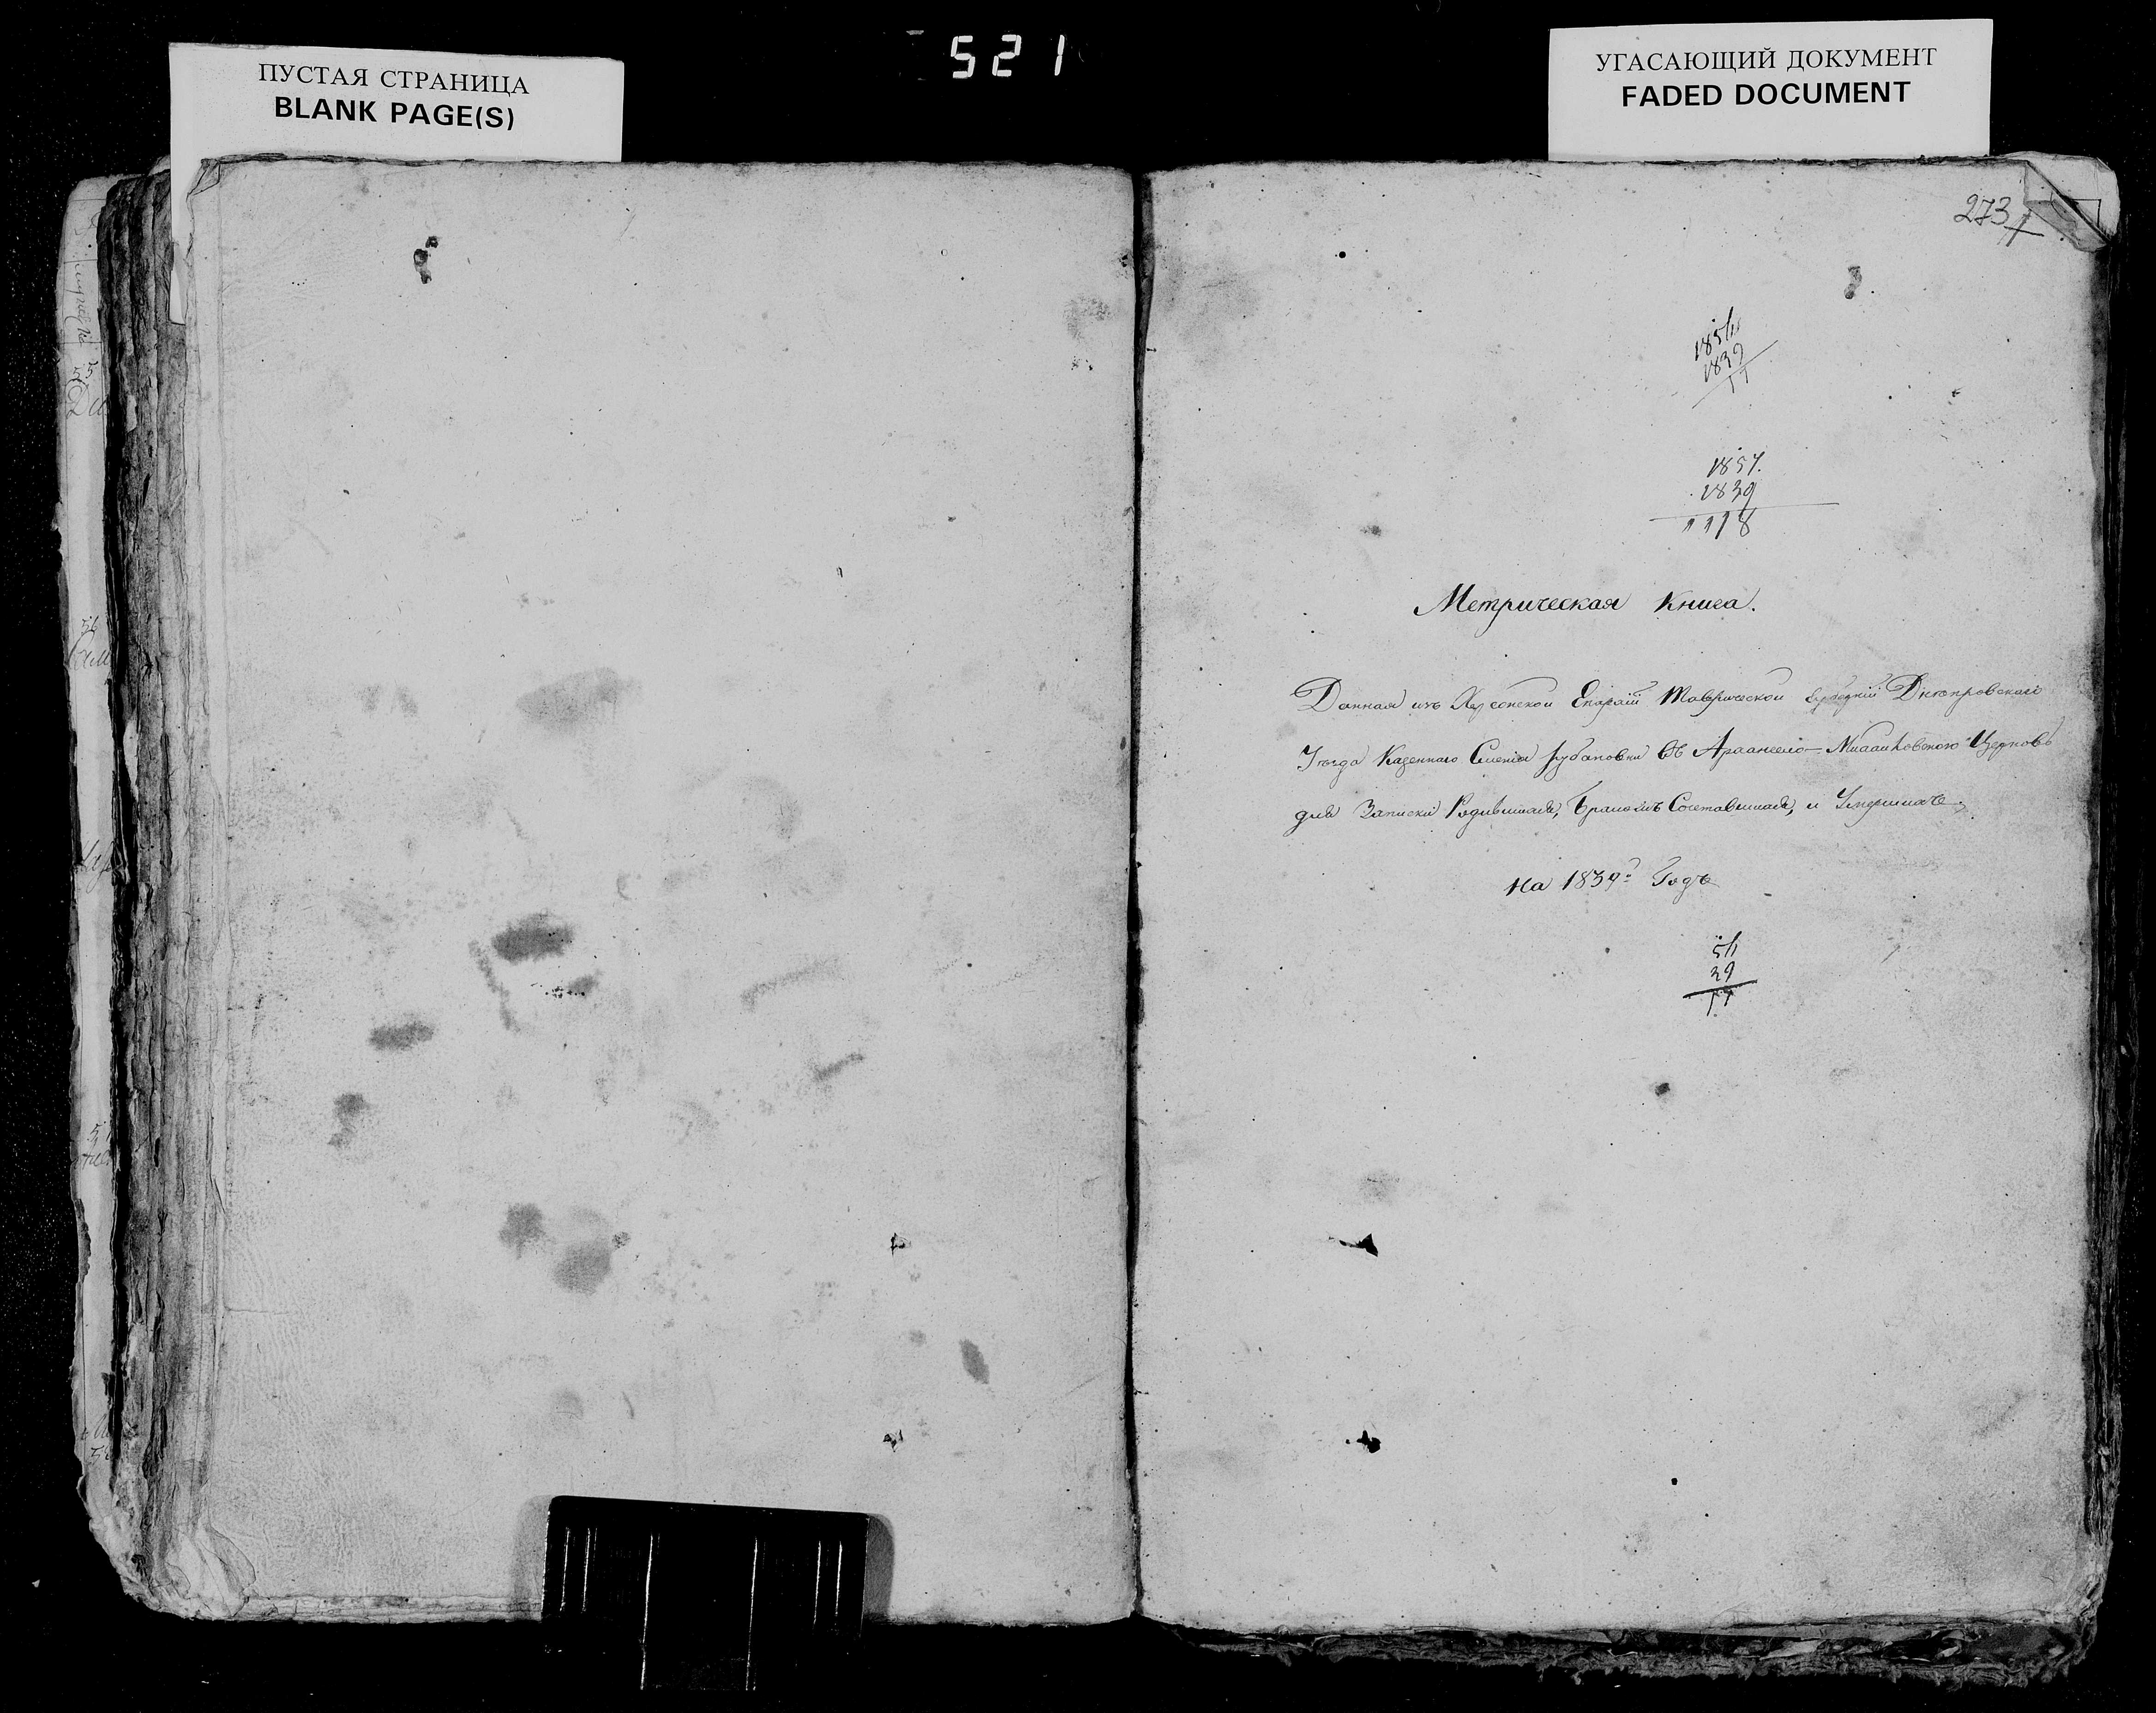 ПУСТАЯ СТРАНИЦА
BLANK PAGE(S)
521
УГАСАЮЩИЙ ДОКУМЕНТ
FADED DOCUMENT
273
1839
1857.
1839
1118
Метрическая Книга.
Данная изъ Херсонской Епархіи Таврической Губерніи Днепровскаго
Уезда Казеннаго Селенія Рубановки въ Архангело-Михаиловскою Церковь
для Записки Родившихся, Бракомъ Сочетавшихся, и Умершихъ
на 1839й Годъ
39
17